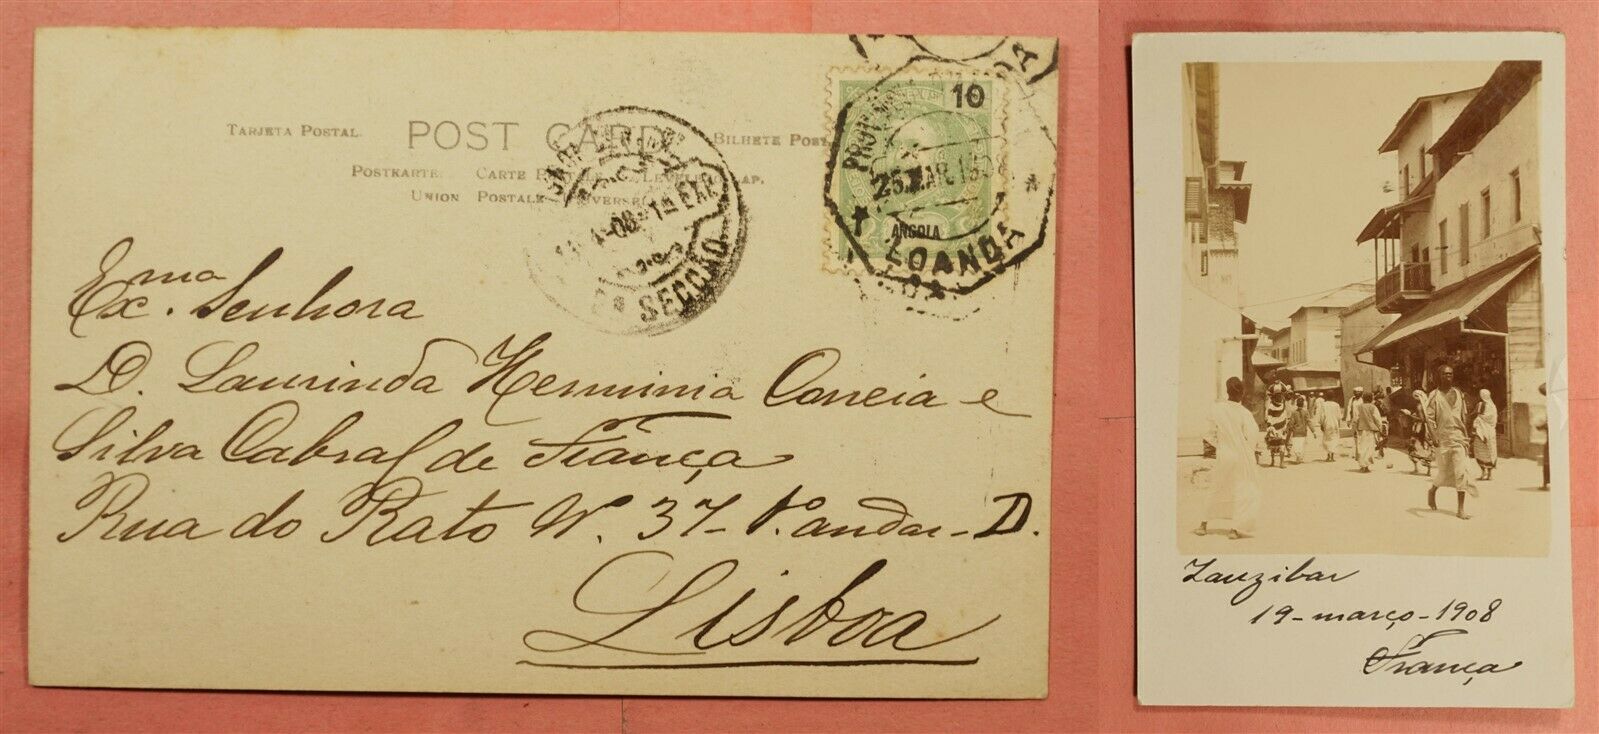 TARJETA POSTAL. POST CARD BILHETE POST
POSTKARTE. CARTE
UNION POSTALE
10
ANGOLA
25 MAR 1908
LOANDA
08 1ª
SECCÃO
Exma. Senhora
D. Laurinda Herminia Correia e
Silva Cabral de França
Rua do Rato Nº. 37-1º. andar-D.
Lisboa
Zanzibar
19-março-1908
França